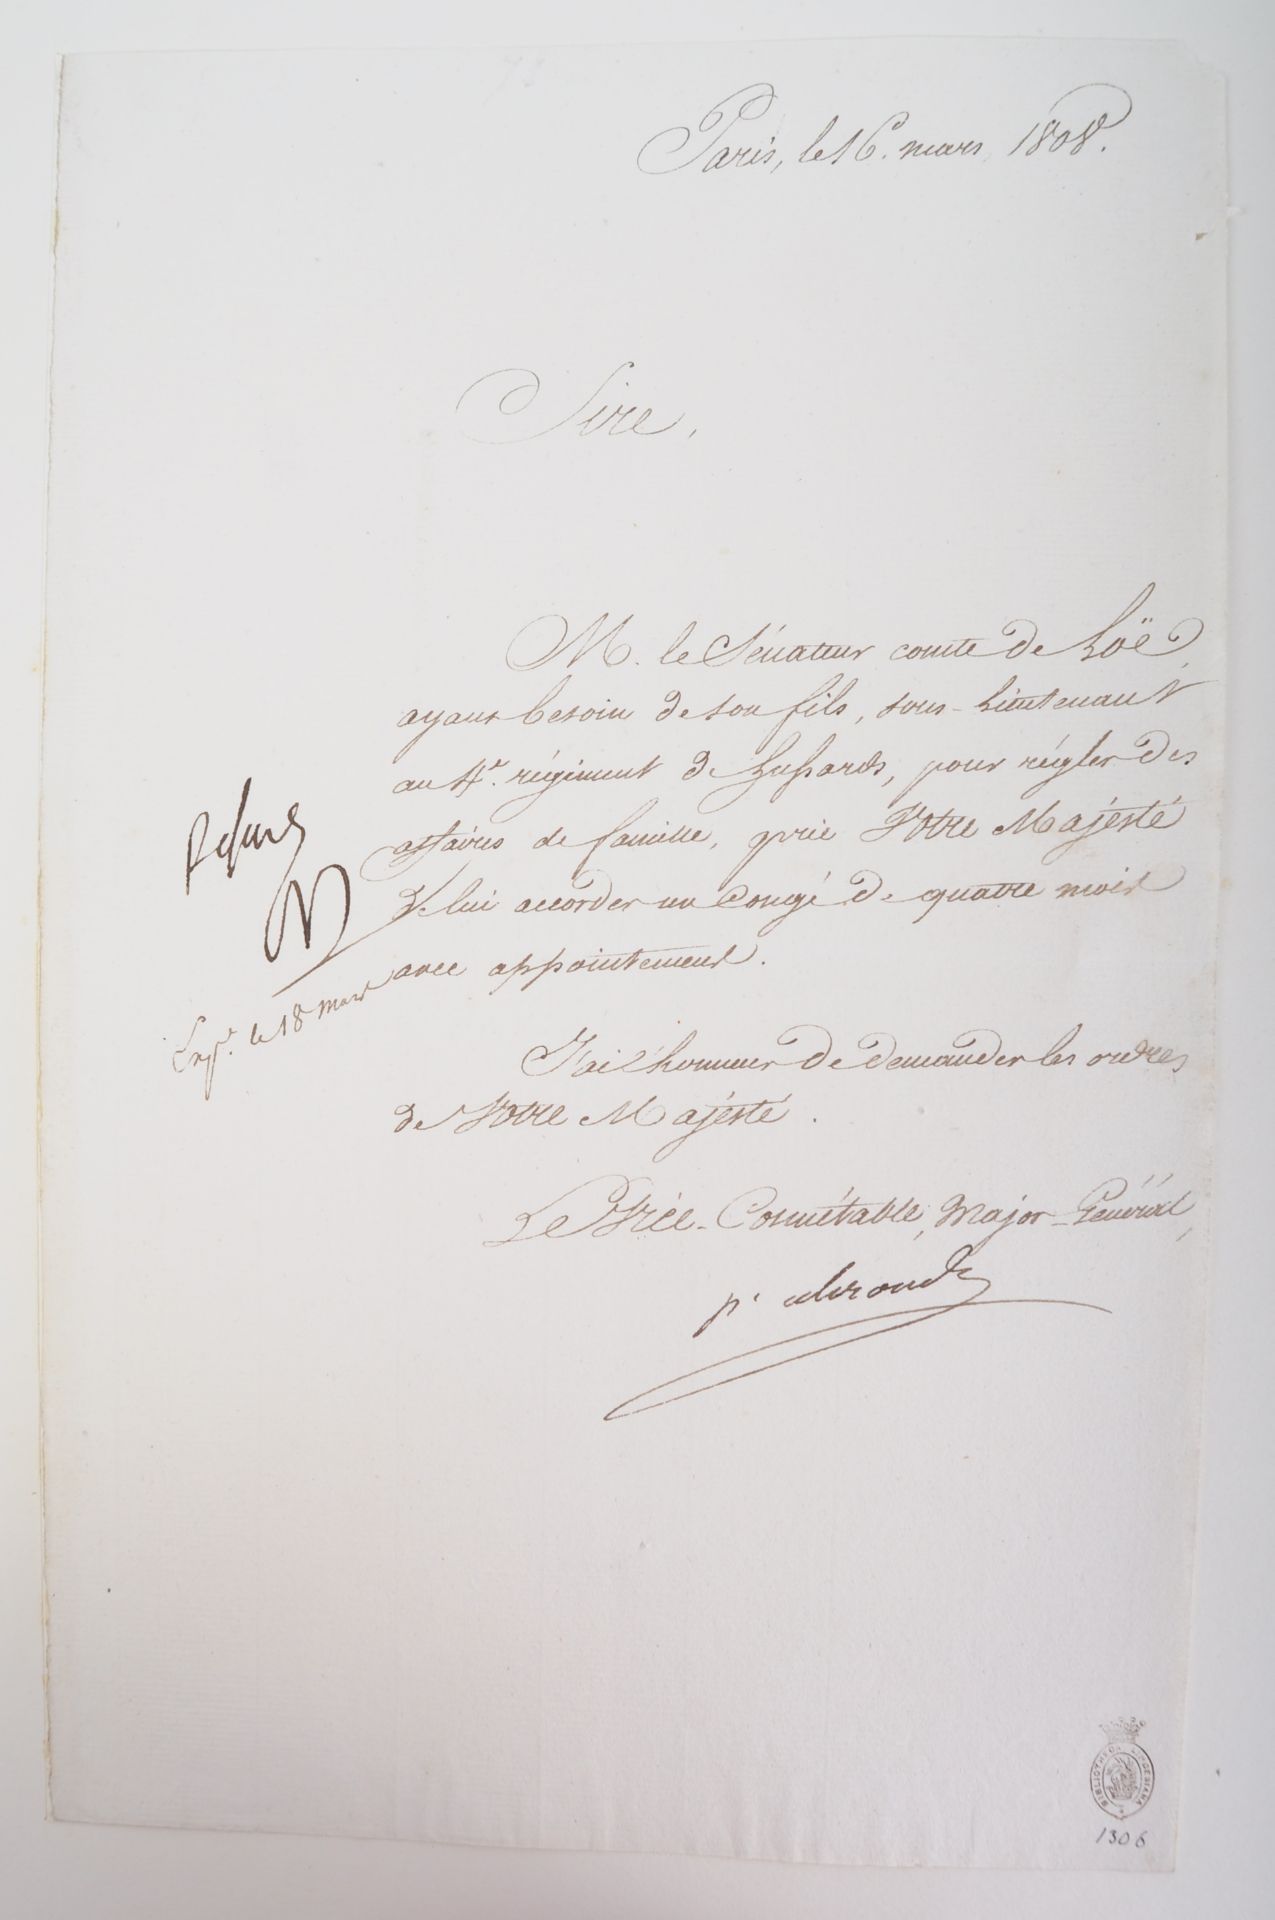 Paris, le 16. mars 1808.
Sire,
M. le Sénateur comte de Loë,
ayant besoin de son fils, sous-Lieutenant
au 4e. régiment de hussards, pour régler des
affaires de famille, prie Votre Majesté
de lui accorder un congé de quatre mois
avec appointement.
Refusé
N
Exp.é le 18 mars
J'ai l'honneur de demander les ordres
de Votre Majesté.
Le Vice-Connétable, Major-Général,
p.
BIBLIOTHECA LINDESIANA
1306